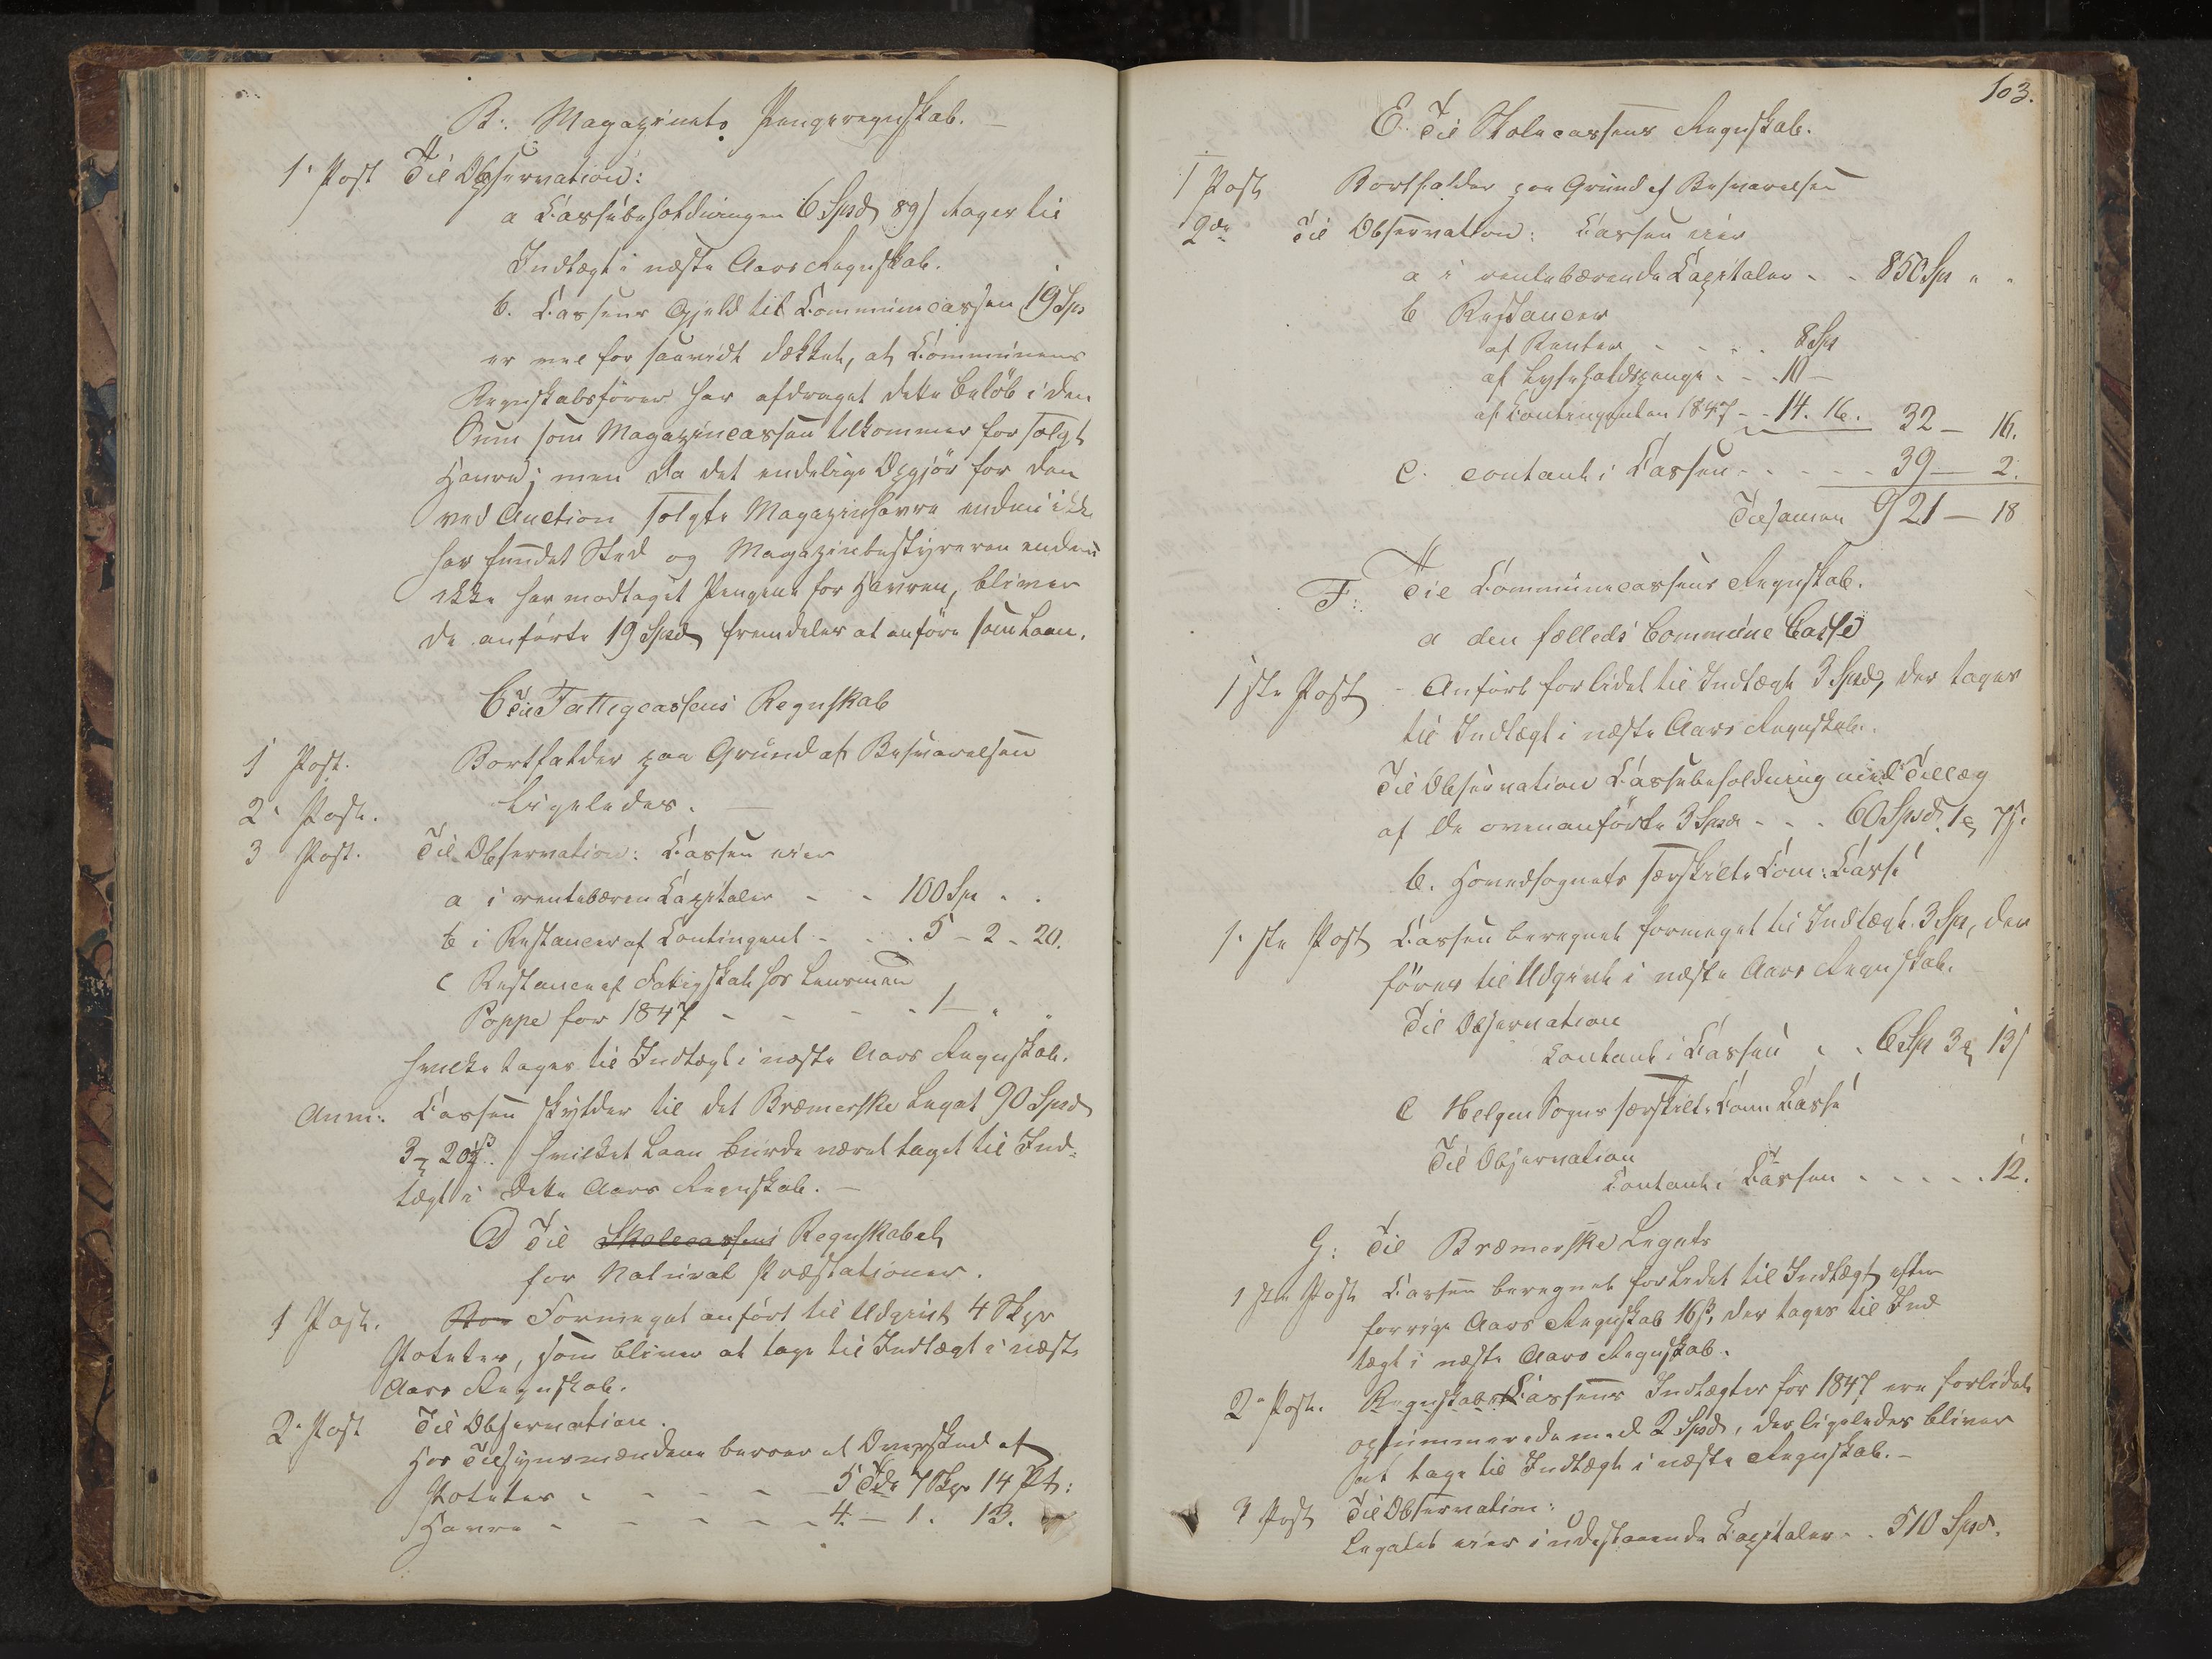 B. Magazinets Pengeregnskab. —
1. Post Til Observation:
a Cassebeholdningen 6 Spd 89 ſ tages til
Indtægt i næste Aars Regnskab.
b. Cassens Gjeld til Communecassen 19 Sp
er vel for saavidt dækket, at Communens
Regnskabsfører har afdraget dette Beløb i den
Sum som Magazincassen tilkommer for solgt
Havre; men da det endelige Opgjør for den
ved Auction solgte Magazinhavre endnu ikke
har fundet Sted og Magazinbestyreren endnu
ikke har modtaget Pengene for Havren, bliver
de anførte 19 Spd fremdeles at anføre som Laan.
C Til Fattigcassens Regnskab
1 Post. Bortfalder paa Grund af Besvarelsen
2. Post. Ligeledes. —
3 Post. Til Observation: Cassen eier
a i rentebæren Capitaler - - 100 Sp " "
b i Restancer af Contingent - - - 5 - 2 - 20.
c Restance af Fattigskat hos Lensmand
Poppe for 1847 - - - - 1 — " "
hvilke tages til Indtægt i næste Aars Regnskab.
Anm: Cassen skylder til det Bræmerske Legat 90 Spd
3 ₰ 20½ ß. hvilket Laan burde været taget til Ind-
tægt i dette Aars Regnskab. —
D Til Skolecassens Regnskabet
for Natural Præstationer.
1 Post. For Formeget anført til Udgivt 4 Skpr
Poteter, som bliver at tage til Indtægt i næste
Aars Regnskab.
2. Post Til Observation.
Hos Tilsynsmændene beroer et Overskud af
Poteter - - - - - 5 Tdr 7 Skpr 14 Pt:
Havre - - - - - 4. — 1. 13.
103.
E. Til Skolecassens Regnskab.
1 Post Bortfalder paa Grund af Besvarelsen
2de Til Observation: Cassen eier
a i rentebærende Capitaler - - 850 Sp " "
b Restancer
af Renter - - - - 8 Sp
af Lysholdspenge - - 10 —
af Contingenten 1847 - - 14. 16. 32 — 16.
c. contant i Cassen - - - - - 39 — 2.
Tilsamen 921 — 18
F. Til Communecassens Regnskab.
a den fælleds Commune Casse
1ste Post - Anført for lidet til Indtægt 3 Spd, der tages
til Indtægt i næste Aars Regnskab.
Til Observation Cassebeholdning med Tillæg
af de ovenanførte 3 Spd - - - 60 Spd 1 ₰ 7 ß.
b. Hovedsognets særskilte Com: Casse
1.ste Post Cassen beregnet formeget til Indtægt 3 Sp, der
føres til Udgivt i næste Aars Regnskab.
Til Observation
Contant i Cassen - - 6 Sp 3 ₰ 13 ſ
c Helgen Sogns særskilte Com Casse
Til Observation
Contant i Cassen - - - - - 12.
G: Til Bræmerske Legats
1ste Post Cassen beregnet for lidet til Indtægt efter
forrige Aars Regnskab 16 ß, der tages til Ind
tægt i næste Aars Regnskab.
2. Post. Regnskabet Cassens Indtægter for 1847 ere forlidet
opsummerede med 2 Spd, der ligeledes bliver
at tage til Indtægt i næste Regnskab. —
3 Post Til Observation:
Legatet eier i udestaaende Capitaler - - 510 Spd.